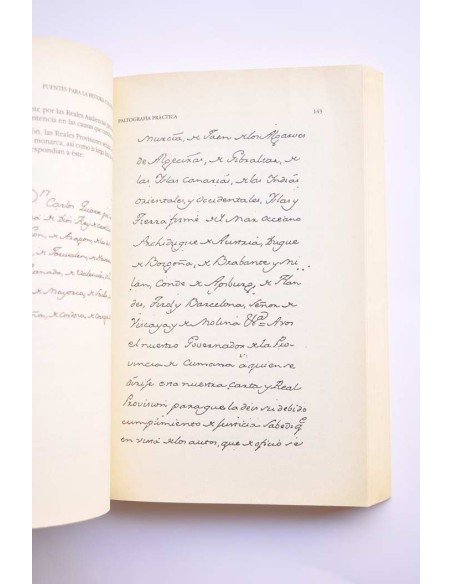 FUENTES PARA LA HISTORIA
por las Reales Audiencias
sentencia en las causas que
las Reales Provisiones
monarca, así como la larga
respondían a éste.
Dn Carlos
PALEOGRAFÍA PRÁCTICA 193
Murcia, de Jaen de los Algarves
de Algeciras, de Gibraltar, de
las Islas Canarias, de las Indias
orientales y Occidentales, Islas y
Tierra firme del Mar Oceano
Archiduque de Austria, Duque
de Borgoña, de Brabante y Mi-
lan, Conde de Apsburg, de Flan-
des, Tirol y Barcelona, Señor de
Viscaya y de Molina &a= A vos
el nuestro Governador de la Pro-
vincia de Cumana à quien se
dirije esta nuestra Carta y Real
Provision para que la deis su debido
cumplimiento de Justicia Sabed q.e
en vista de los autos, que de oficio se